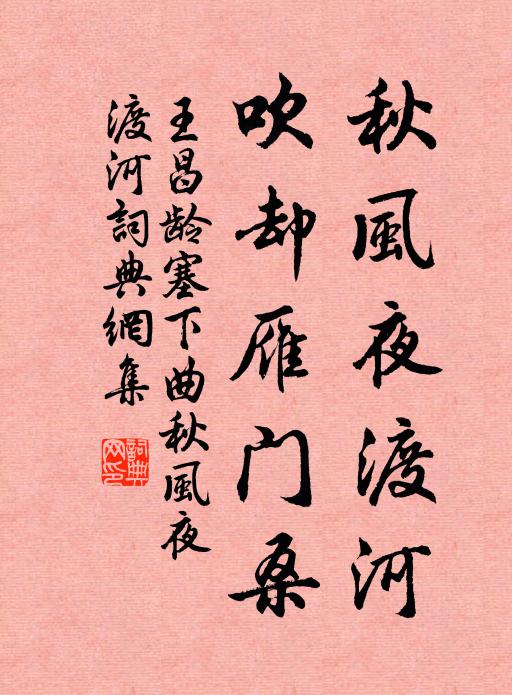 秋風夜渡河
吹却雁门桑
王昌龄塞下曲秋風夜
渡河詞典網集
詞典
网印